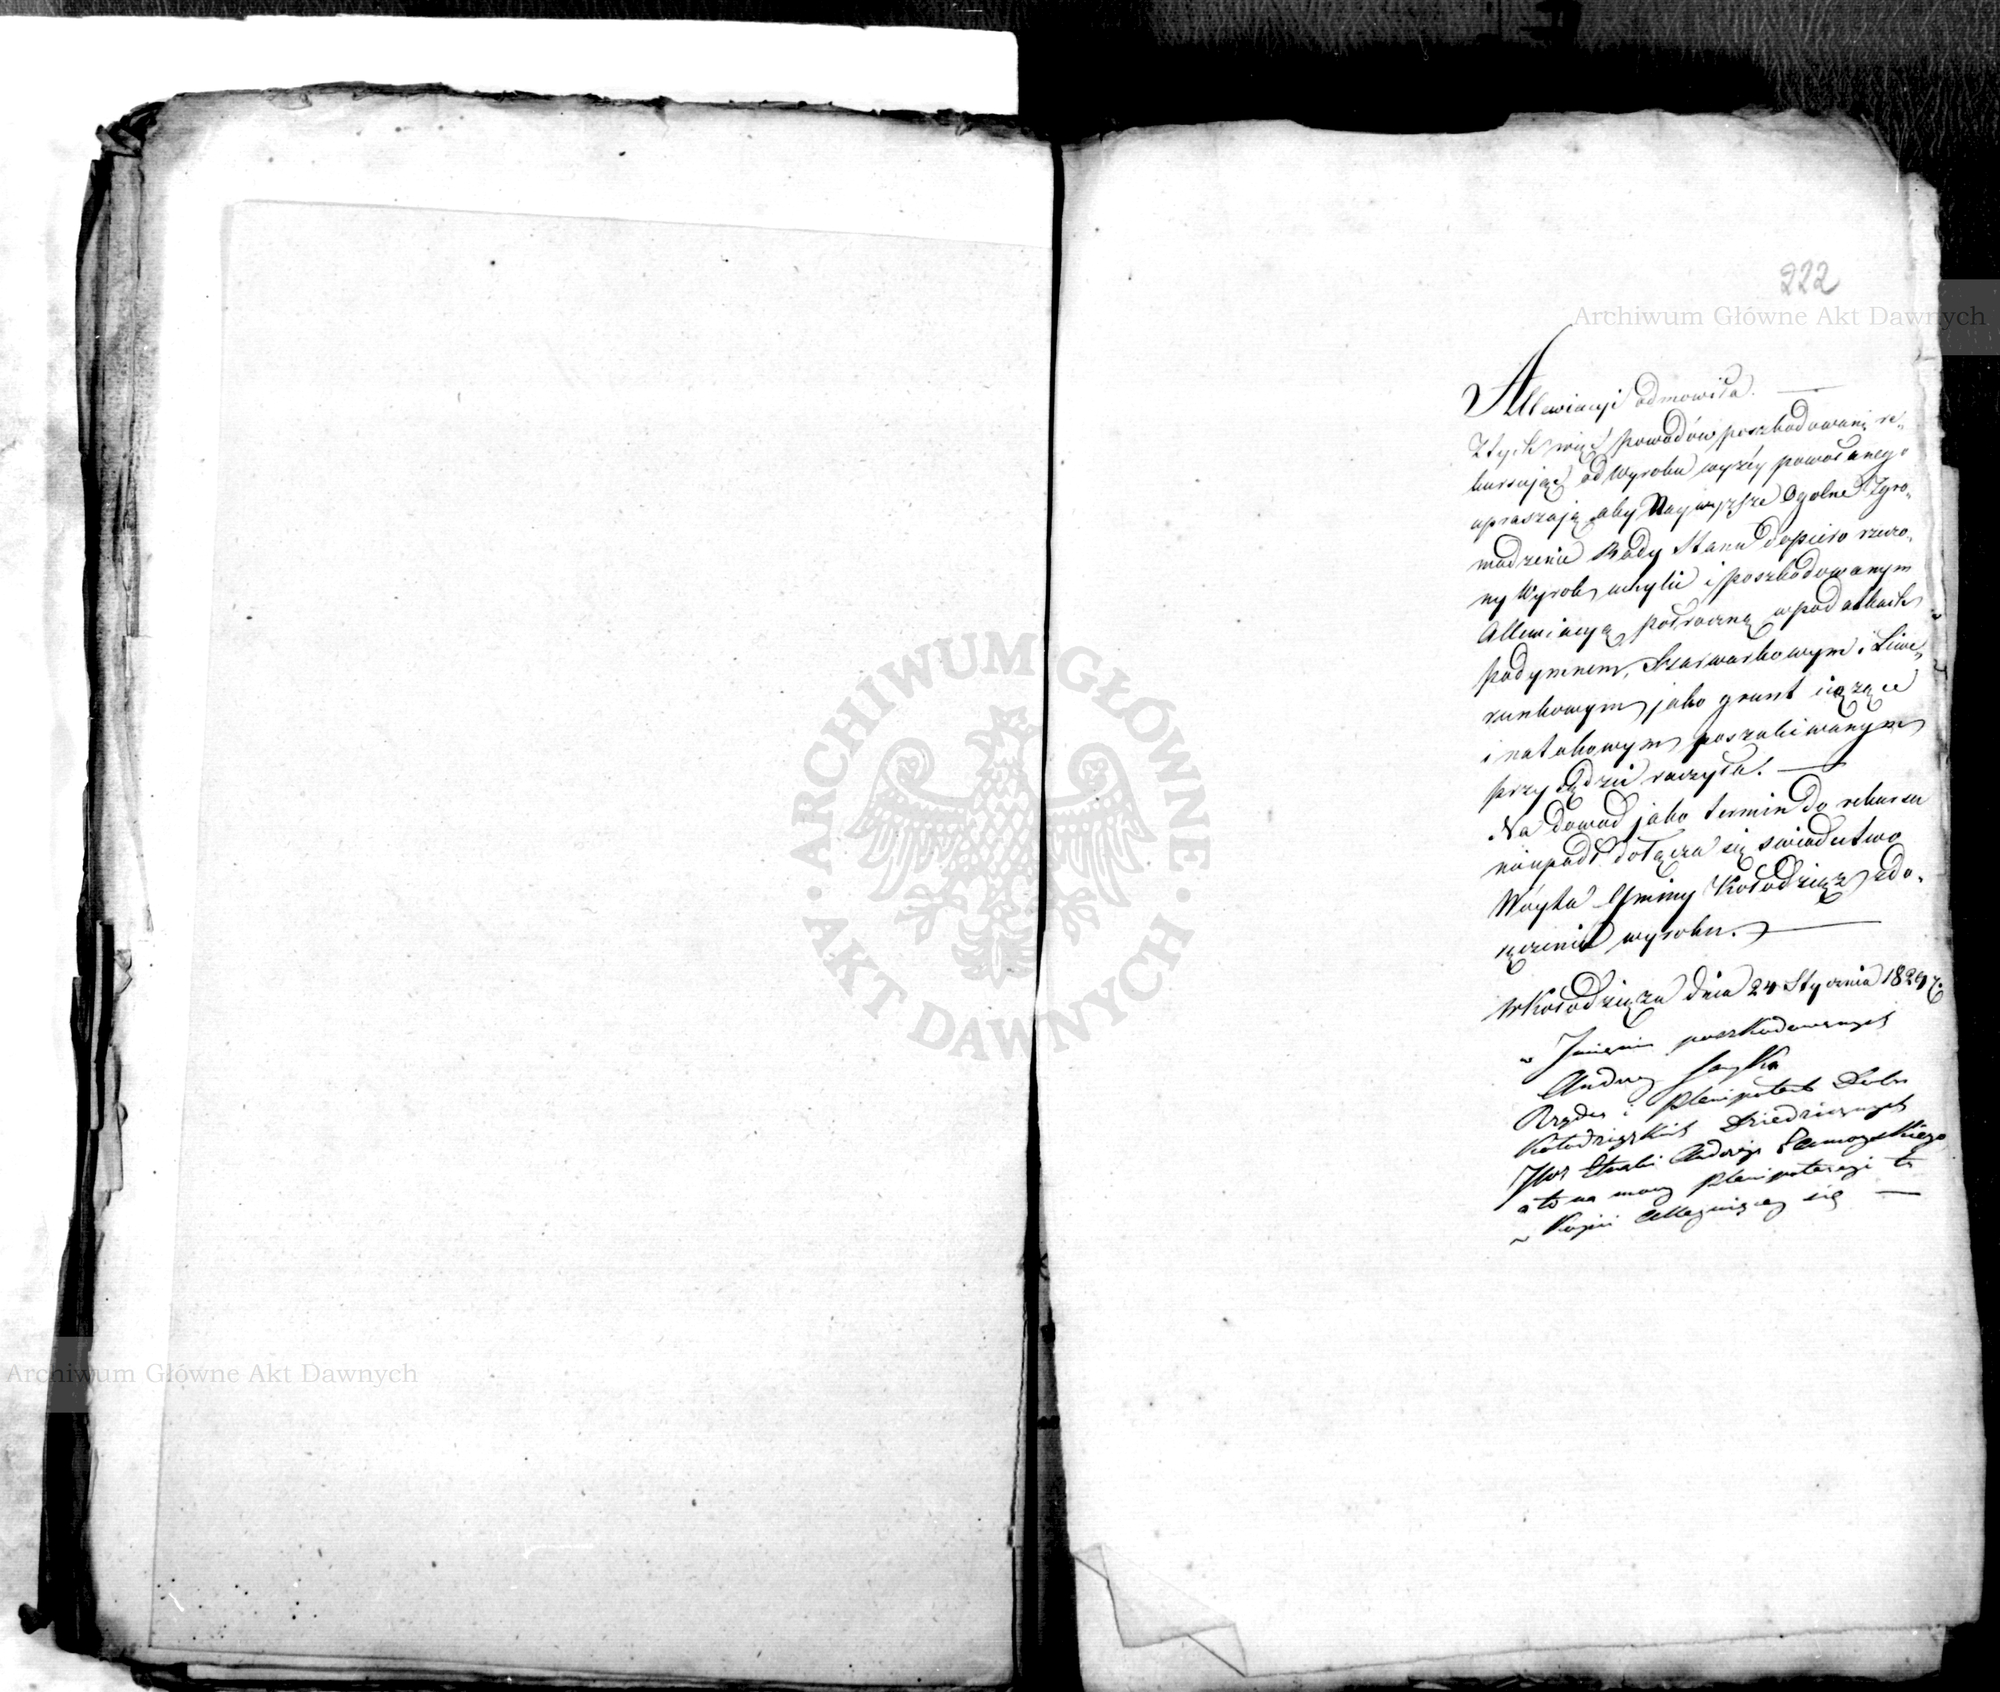 222
Archiwum Główne Akt Dawnych
Allewiacyi odmowiła. —
Z tych więc powodów poszkodowani re-
kursując od Wyroku wyżéy powołanego
upraszają aby Naywyższe Ogolne Zgro-
madzenie Rady Stanu dopiero rzeczo-
ny Wyrok uchylić i poszkodowanym
Allewiacyą półroczną w podatkach
Podymnem, Szarwarkowym i Liwe-
runkowym jako grunt ciążące
i za takowym poszukiwanym
przysądzić raczyła. —
Na dowod jako termin do rekursu
nieupadł dołącza się swiadectwo
Wóyta Gminy Kołodziąż z do-
ręczenia wyroku. —
w Kołodziążu dnia 24 Stycznia 1829 r.
w Imieniu poszkodowanych
Andrzey
Rządca i Plenipotent Dobr
Kołodziąskich Dziedzicznych
JWo Hrabi Andrzeja Zamoyskiego
a to na mocy Plenipotencyi tu
w Kopii allegującey się —
ARCHIWUM GŁÓWNE
· AKT DAWNYCH ·
Archiwum Główne Akt Dawnych